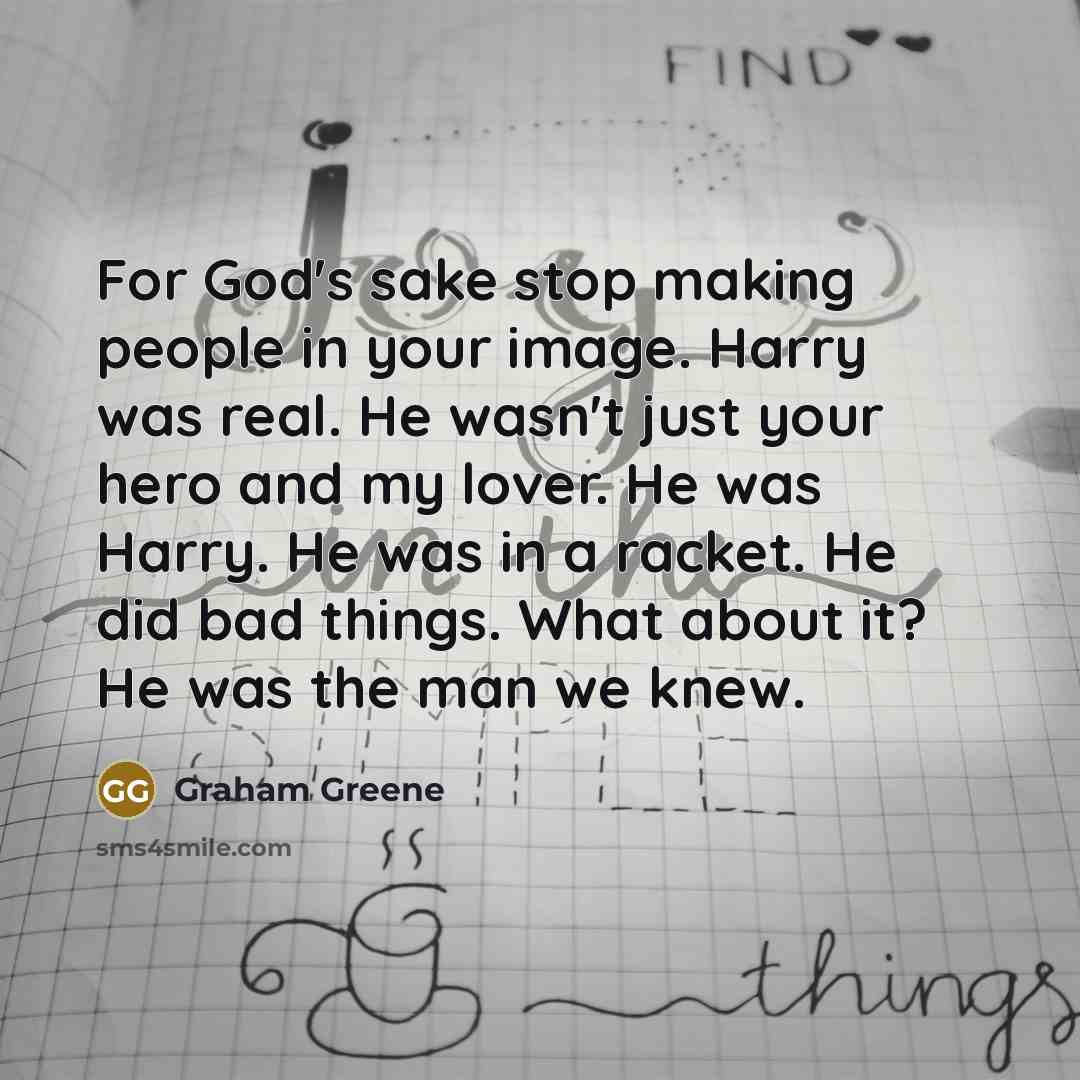 FIND
joy
in the
For God's sake stop making
people in your image. Harry
was real. He wasn't just your
hero and my lover. He was
Harry. He was in a racket. He
did bad things. What about it?
He was the man we knew.
SIMPLE
GG Graham Greene
sms4smile.com
things